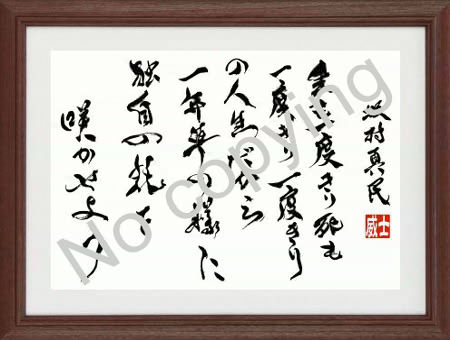 坂村真民
威士
生も一度きり死も
一度きり一度きり
の人生だから
一年草の様に
独自の花を
咲かせよう
No copying